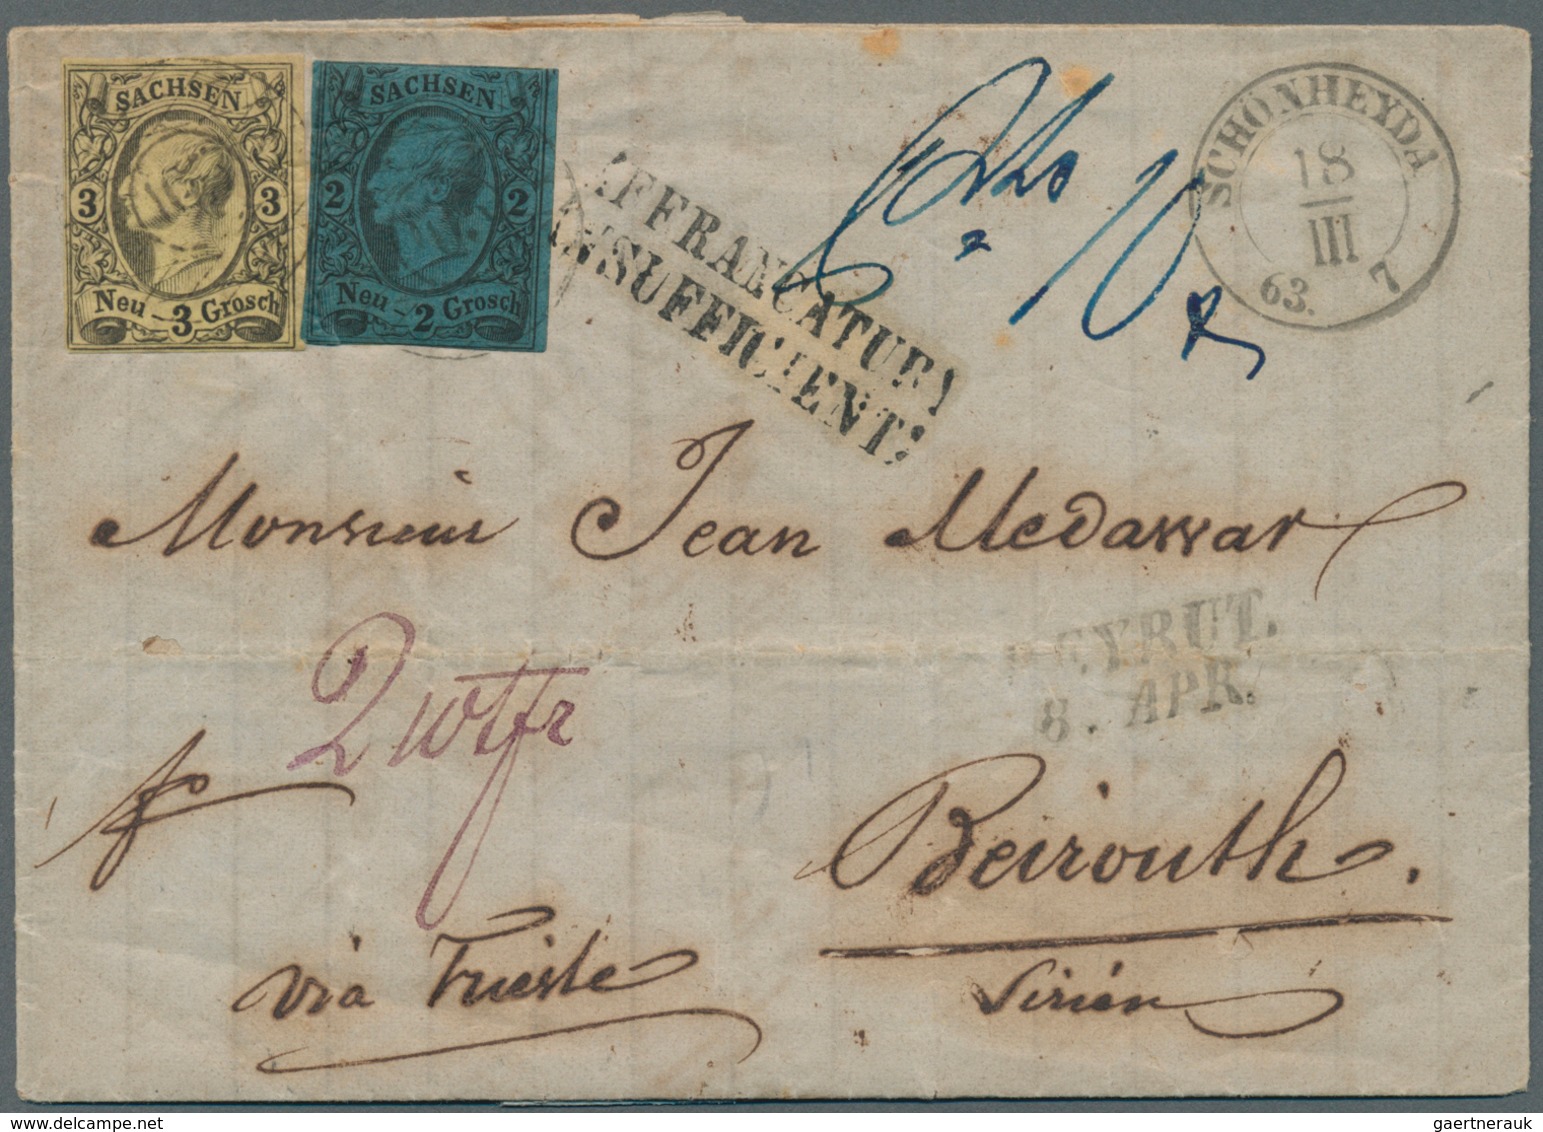 SACHSEN
3 3
Neu - 3 Grosch
SACHSEN
2 2
Neu - 2 Grosch
AFFRANCATURA
INSUFFICIENTE
SCHÖNHEYDA
18
III
63. 7
Monsieur Jean Medawar
BEYRUT.
8. APR.
2 wtfr
fco
Beirouth.
via Trieste
Sirien
gaertnerauk@gmx.de